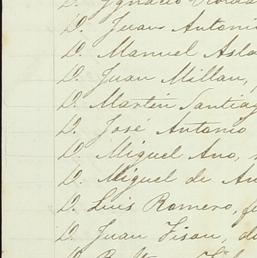 D. Ignacio
D. Juan Antonio
D. Manuel
D. Juan Millan,
D. Martin Santiag
D. José Antonio
D. Miguel Ano,
D. Miguel de
D. Luis Romero,
D. Juan Tison, d
D.